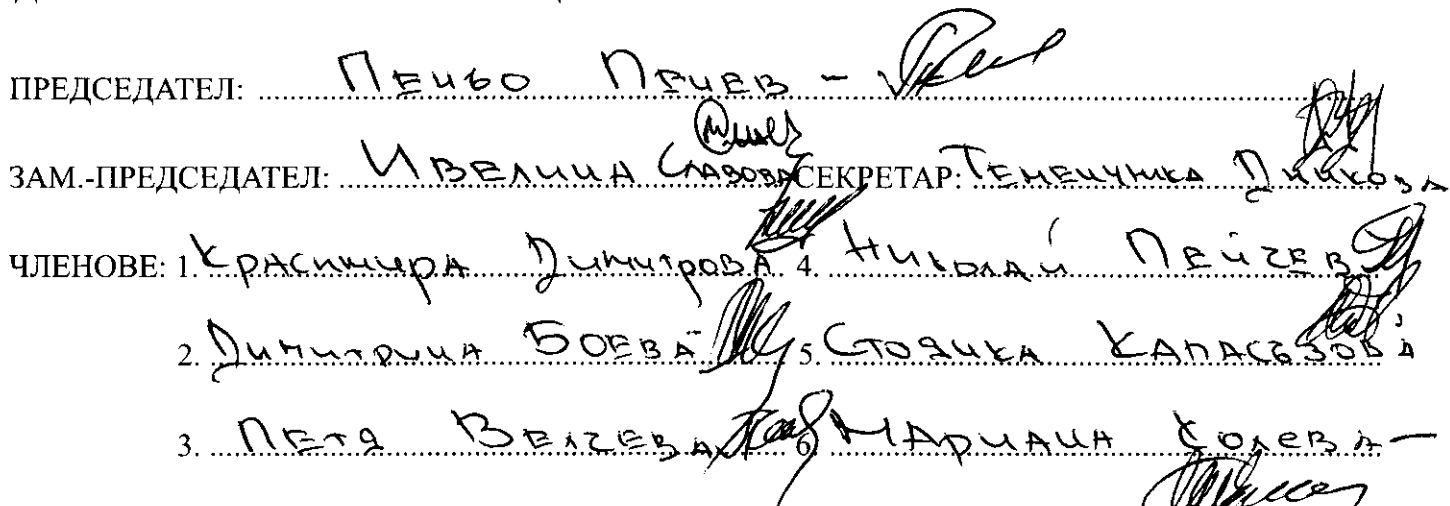 ПРЕДСЕДАТЕЛ: Пеньо Пенев -
ЗАМ.-ПРЕДСЕДАТЕЛ: Ивелина Славова СЕКРЕТАР: Теменужка Динкова
ЧЛЕНОВЕ: 1. Красимира Димитрова 4. Николай Пейчев
2. Димитрина Боева 5. Стоянка
3. Петя Велчева 6. Мариана Колева -